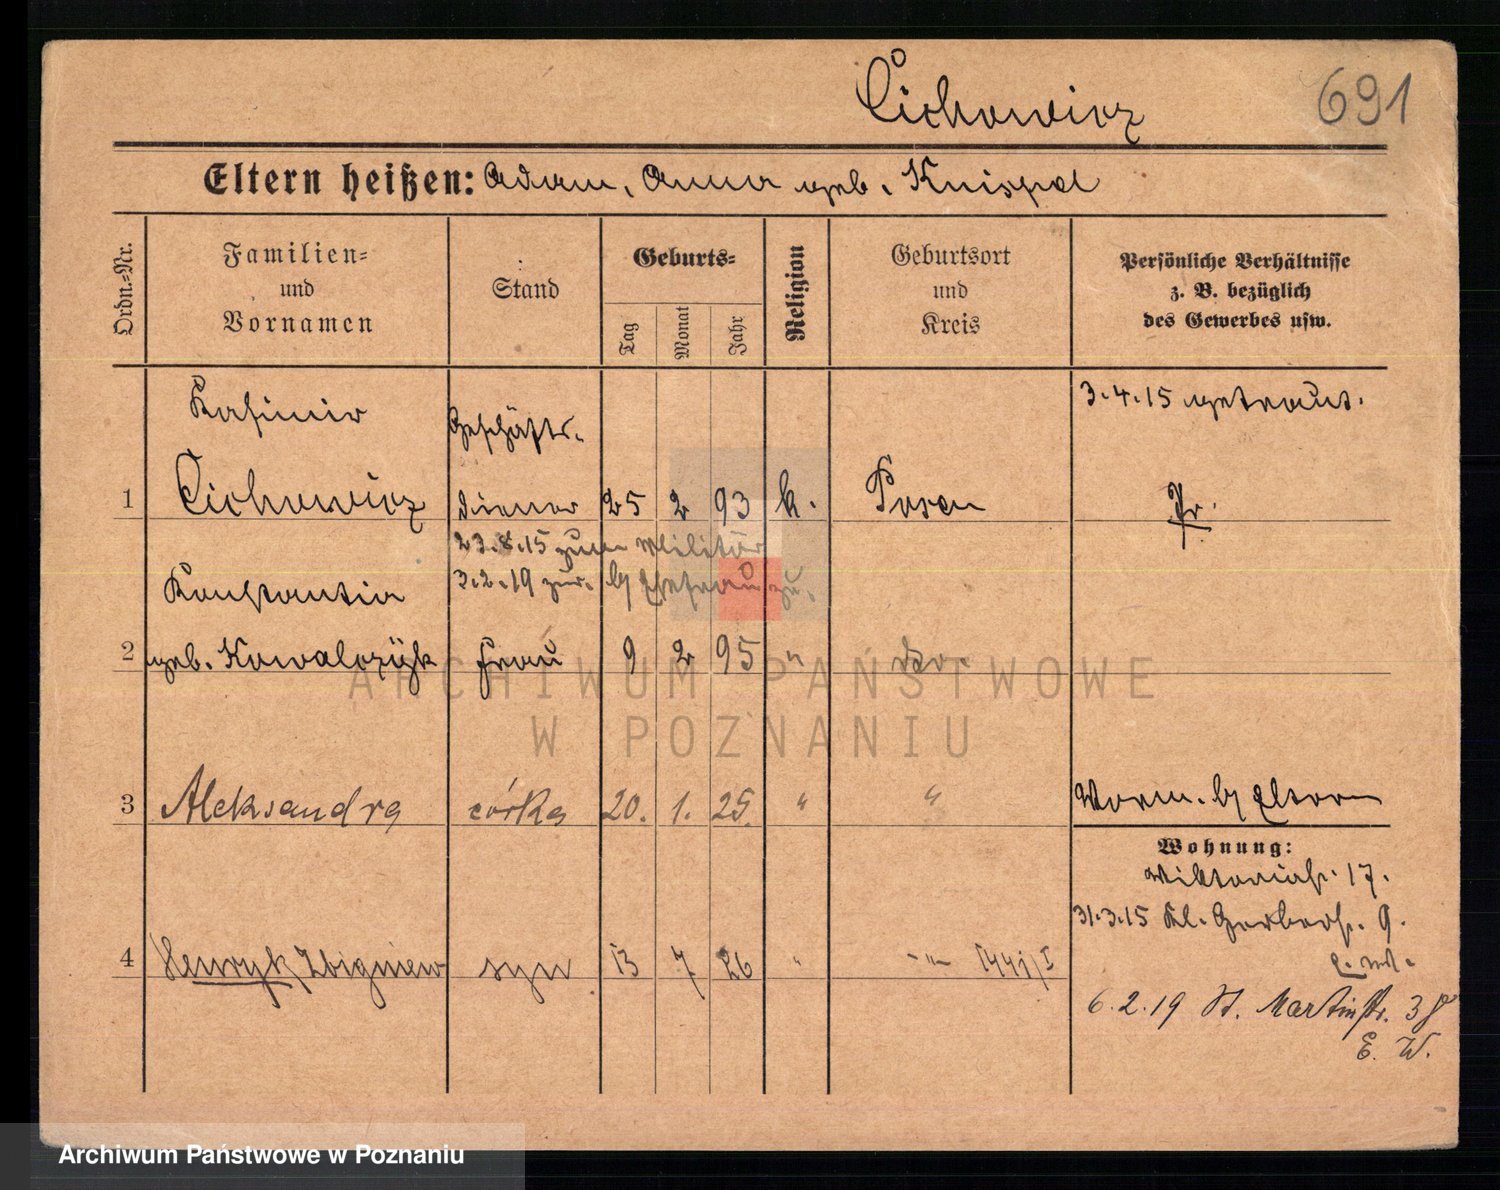 Cichowicz
691
Eltern heißen: Adam, Anna geb. Knispel
Ordn.-Nr.
Familien-
und
Vornamen
Stand
Geburts-
Tag
Monat
Jahr
Religion
Geburtsort
und
Kreis
Persönliche Verhältnisse
z. B. bezüglich
des Gewerbes usw.
Kasimir
Geschäfts-
3.4.15 getraut.
1 Cichowicz diener 25 2 93 k. Posen Pr.
23.8.15 zum Militär
3.2.19 zur. b/ Ehefrau zu.
Konstantia
2 geb. Kowalczÿk Frau 9 2 95 " do.
3 Aleksandra córka 20. 1. 25. " " Worm. b/ Eltern
Wohnung:
Viktoriastr. 17.
31.3.15 Kl. Gerberstr. 9.
4 Henryk Zbigniew syn 13 7 26 " -"- 1441/I
6.2.19 St. Martinstr. 38
E. W.
ARCHIWUM PAŃSTWOWE
W POZNANIU
Archiwum Państwowe w Poznaniu